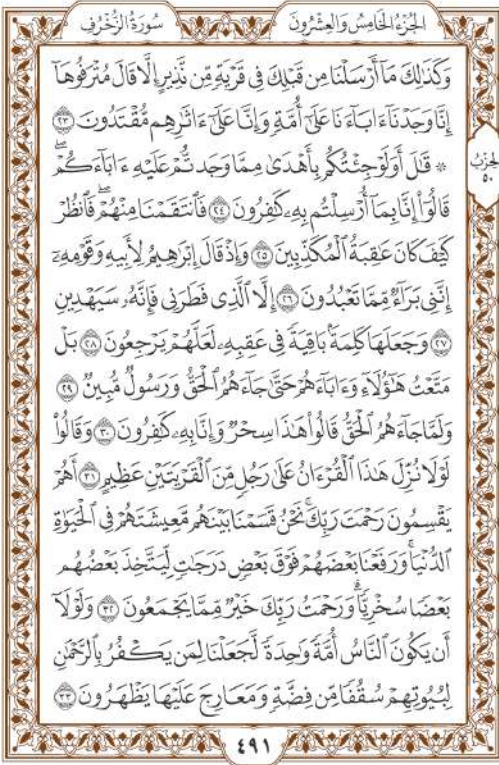 الجُزْءُ الخَامِسُ وَالعِشْرُونَ
سُورَةُ الزُّخْرُفِ
وَكَذَٰلِكَ مَآ أَرْسَلْنَا مِن قَبْلِكَ فِي قَرْيَةٍ مِّن نَّذِيرٍ إِلَّا قَالَ مُتْرَفُوهَآ
إِنَّا وَجَدْنَآ ءَابَآءَنَا عَلَىٰٓ أُمَّةٍ وَإِنَّا عَلَىٰٓ ءَاثَٰرِهِم مُّقْتَدُونَ ٢٣
۞ قَٰلَ أَوَلَوْ جِئْتُكُم بِأَهْدَىٰ مِمَّا وَجَدتُّمْ عَلَيْهِ ءَابَآءَكُمْۖ
قَالُوٓا۟ إِنَّا بِمَآ أُرْسِلْتُم بِهِۦ كَٰفِرُونَ ٢٤ فَٱنتَقَمْنَا مِنْهُمْۖ فَٱنظُرْ
كَيْفَ كَانَ عَٰقِبَةُ ٱلْمُكَذِّبِينَ ٢٥ وَإِذْ قَالَ إِبْرَٰهِيمُ لِأَبِيهِ وَقَوْمِهِۦٓ
إِنَّنِي بَرَآءٌ مِّمَّا تَعْبُدُونَ ٢٦ إِلَّا ٱلَّذِي فَطَرَنِي فَإِنَّهُۥ سَيَهْدِينِ
٢٧ وَجَعَلَهَا كَلِمَةًۢ بَاقِيَةً فِي عَقِبِهِۦ لَعَلَّهُمْ يَرْجِعُونَ ٢٨ بَلْ
مَتَّعْتُ هَٰٓؤُلَآءِ وَءَابَآءَهُمْ حَتَّىٰ جَآءَهُمُ ٱلْحَقُّ وَرَسُولٌ مُّبِينٌ ٢٩
وَلَمَّا جَآءَهُمُ ٱلْحَقُّ قَالُوا۟ هَٰذَا سِحْرٌ وَإِنَّا بِهِۦ كَٰفِرُونَ ٣٠ وَقَالُوا۟
لَوْلَا نُزِّلَ هَٰذَا ٱلْقُرْءَانُ عَلَىٰ رَجُلٍ مِّنَ ٱلْقَرْيَتَيْنِ عَظِيمٍ ٣١ أَهُمْ
يَقْسِمُونَ رَحْمَتَ رَبِّكَۚ نَحْنُ قَسَمْنَا بَيْنَهُم مَّعِيشَتَهُمْ فِي ٱلْحَيَوٰةِ
ٱلدُّنْيَاۚ وَرَفَعْنَا بَعْضَهُمْ فَوْقَ بَعْضٍ دَرَجَٰتٍ لِّيَتَّخِذَ بَعْضُهُم
بَعْضًا سُخْرِيًّاۗ وَرَحْمَتُ رَبِّكَ خَيْرٌ مِّمَّا يَجْمَعُونَ ٣٢ وَلَوْلَآ
أَن يَكُونَ ٱلنَّاسُ أُمَّةً وَٰحِدَةً لَّجَعَلْنَا لِمَن يَكْفُرُ بِٱلرَّحْمَٰنِ
لِبُيُوتِهِمْ سُقُفًا مِّن فِضَّةٍ وَمَعَارِجَ عَلَيْهَا يَظْهَرُونَ ٣٣
الحِزْبُ
٥٠
٤٩١